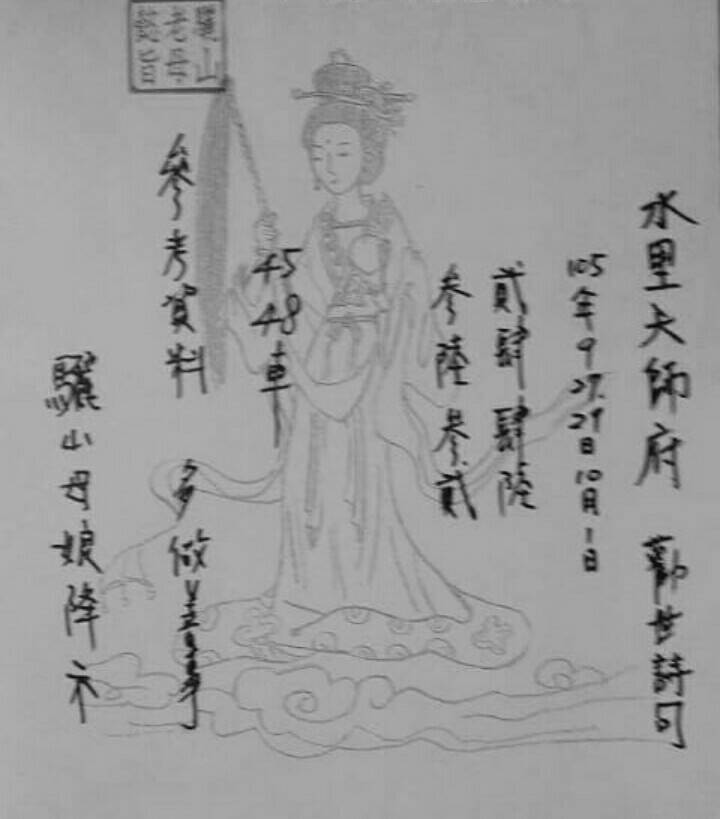 水里大師府 勸世詩句
105年9 27.29日10月1日
貳肆 肆陸
參陸 參貳
45
48車
參考資料 多做善事
驪山母娘降示
驪山
老母